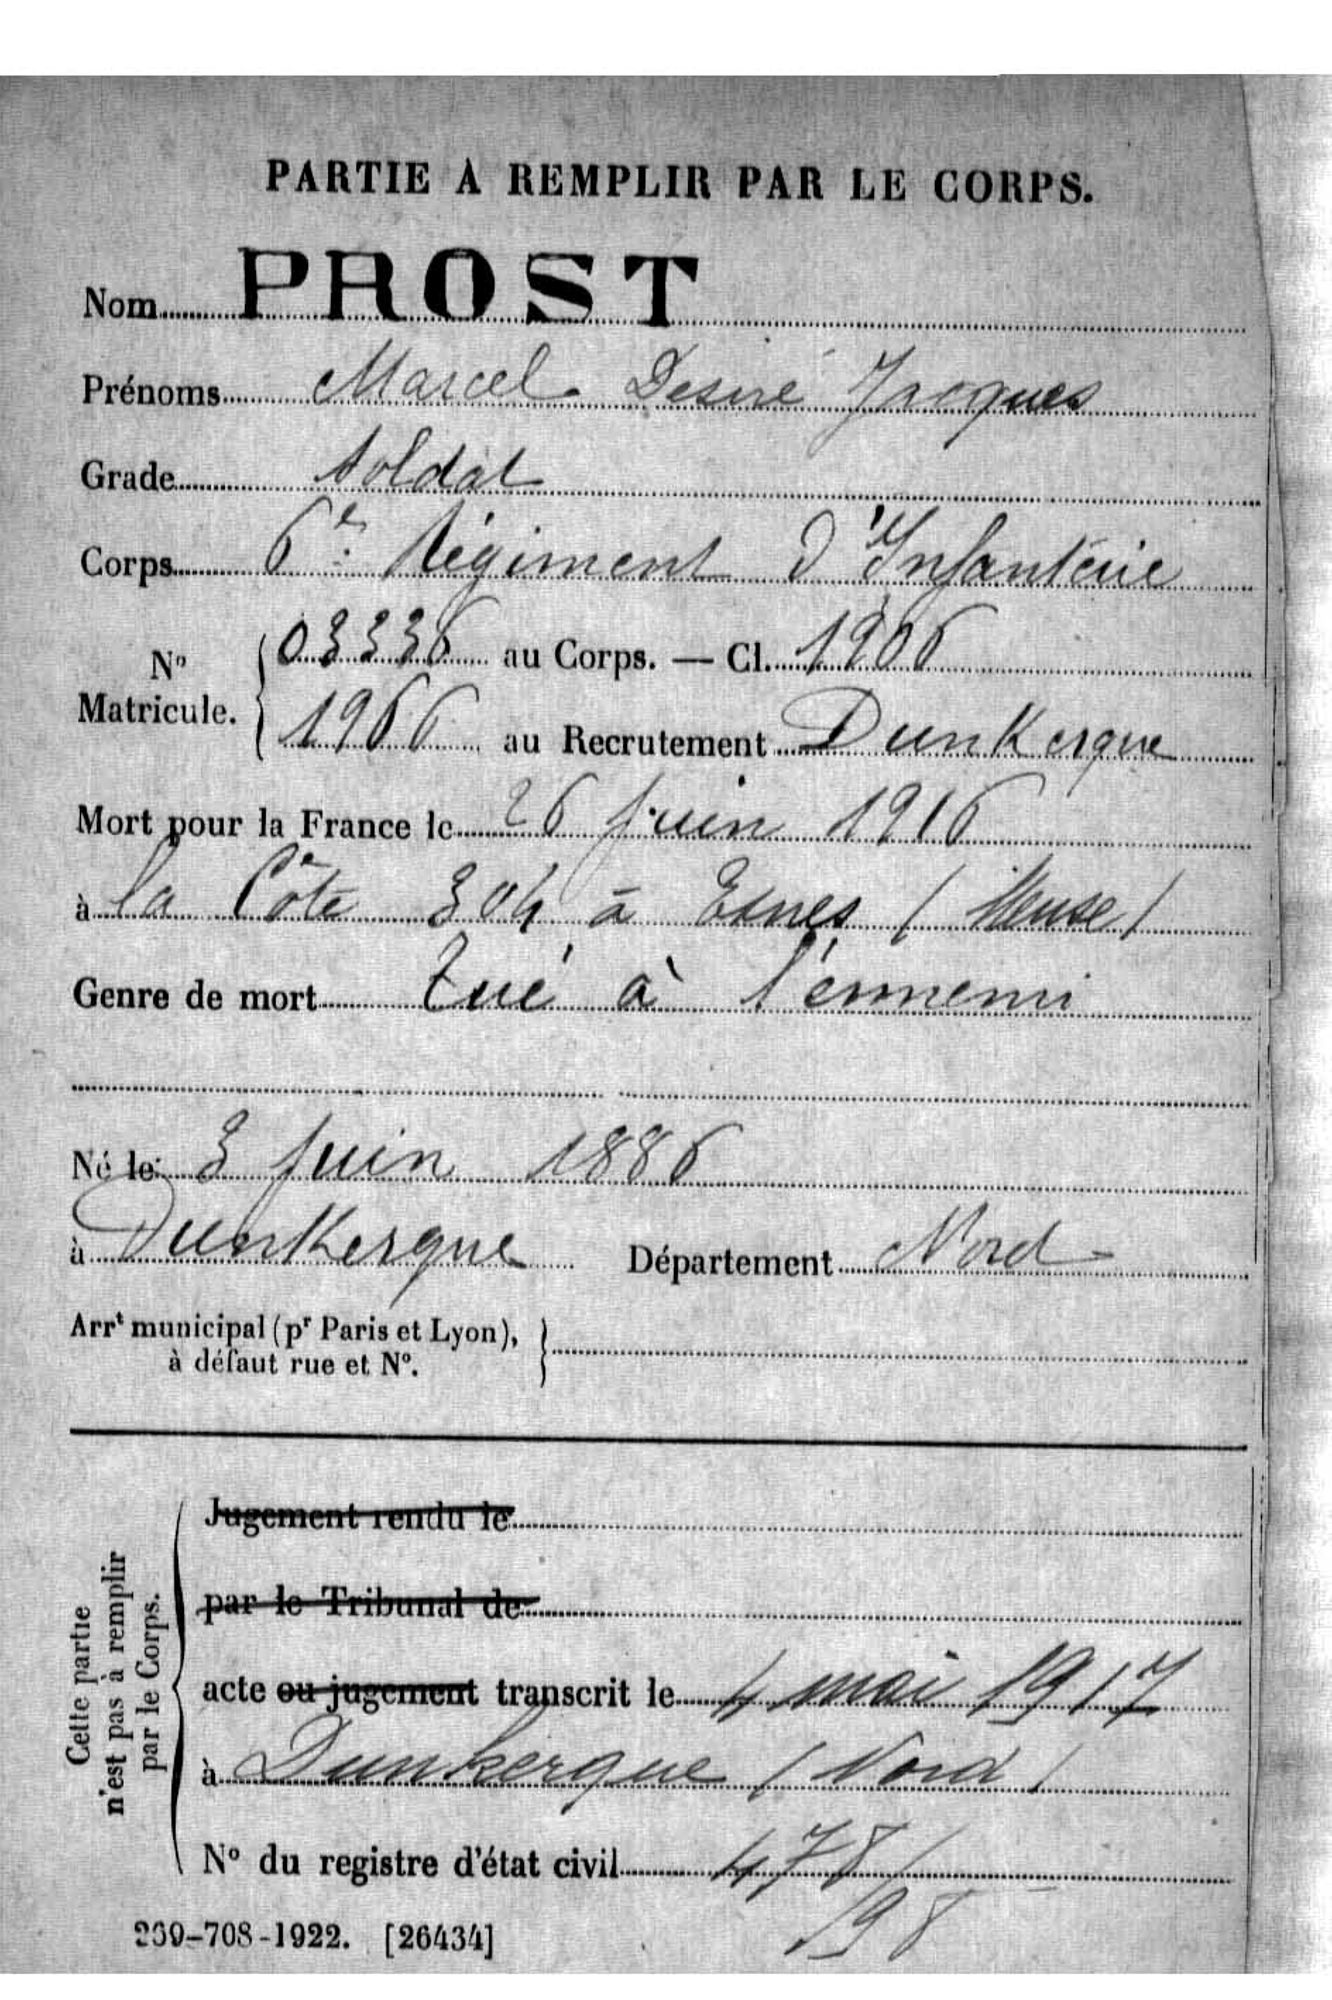 PARTIE A REMPLIR PAR LE CORPS.
Nom PROST
Prénoms Marcel Desiré Jacques
Grade Soldat
Corps 6e Régiment d'Infanterie
No Matricule. 03336 au Corps. — Cl. 1906
1966 au Recrutement Dunkerque
Mort pour la France le 26 juin 1916
à la Côte 304 à Esnes (Meuse)
Genre de mort tué à l'ennemi
Né le 3 juin 1886
à Dunkerque Département Nord
Arrt municipal (pr Paris et Lyon),
à défaut rue et No.
Cette partie
n'est pas à remplir
par le Corps.
Jugement rendu le
par le Tribunal de
acte ou jugement transcrit le 4 mai 1917
à Dunkerque (Nord)
No du registre d'état civil 478/
198
-708-1922. [26434]